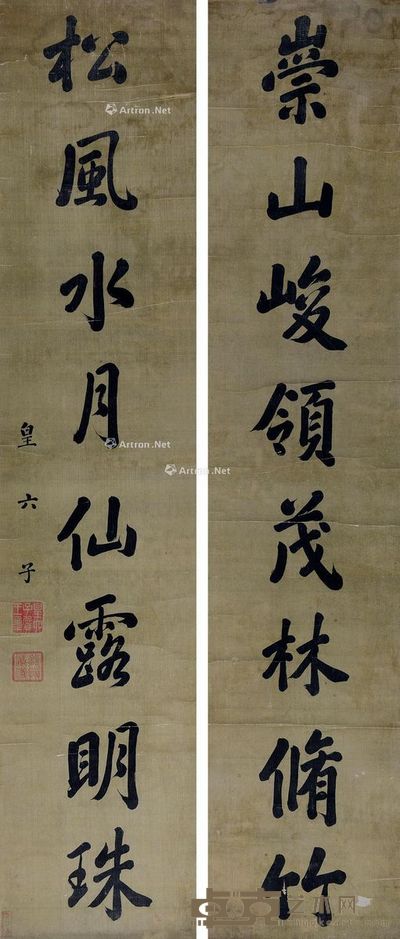 崇山峻領茂林脩竹
松風水月仙露明珠
皇六子
Artron.Net
Artron.Net
Artron.Net
Artron.Net